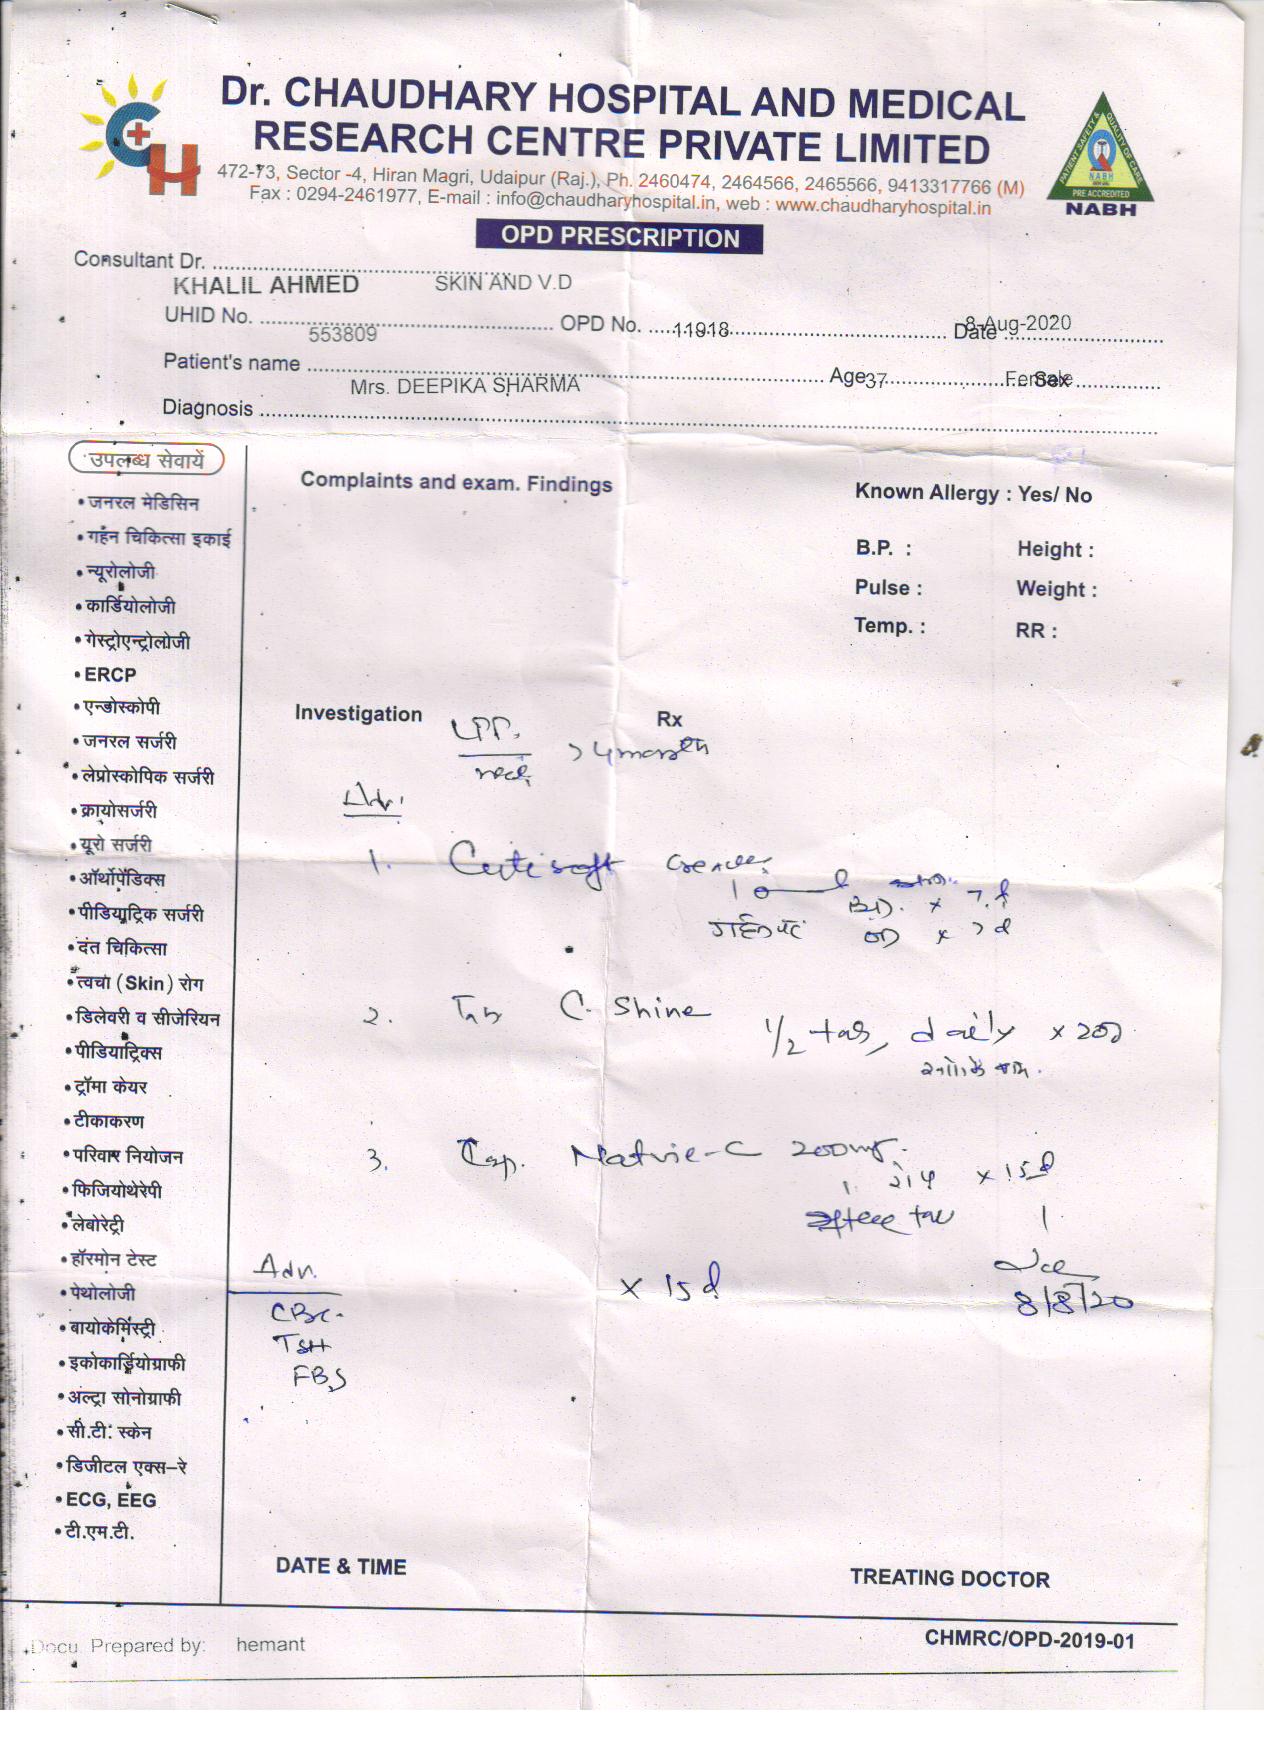 Dr. CHAUDHARY HOSPITAL AND MEDICAL
RESEARCH CENTRE PRIVATE LIMITED
472-73, Sector -4, Hiran Magri, Udaipur (Raj.), Ph. 2460474, 2464566, 2465566, 9413317766 (M)
Fax : 0294-2461977, E-mail : info@chaudharyhospital.in, web : www.chaudharyhospital.in
PATIENT SAFETY & QUALITY OF CARE
NABH
PRE ACCREDITED
NABH
OPD PRESCRIPTION
Consultant Dr.
KHALIL AHMED SKIN AND V.D
UHID No. 553809 OPD No. 11918 Date 8-Aug-2020
Patient's name Mrs. DEEPIKA SHARMA Age 37 Sex Female
Diagnosis
उपलब्ध सेवायें
• जनरल मेडिसिन
• गहन चिकित्सा इकाई
• न्यूरोलोजी
• कार्डियोलोजी
• गेस्ट्रोएन्ट्रोलोजी
• ERCP
• एन्डोस्कोपी
• जनरल सर्जरी
• लेप्रोस्कोपिक सर्जरी
• क्रायोसर्जरी
• यूरो सर्जरी
• ऑर्थोपेडिक्स
• पीडियाट्रिक सर्जरी
• दंत चिकित्सा
• त्वचा (Skin) रोग
• डिलेवरी व सीजेरियन
• पीडियाट्रिक्स
• ट्रॉमा केयर
• टीकाकरण
• परिवार नियोजन
• फिजियोथेरेपी
• लेबोरेट्री
• हॉरमोन टेस्ट
• पेथोलोजी
• बायोकेमिस्ट्री
• इकोकार्ड्रियोग्राफी
• अल्ट्रा सोनोग्राफी
• सी.टी. स्केन
• डिजीटल एक्स–रे
• ECG, EEG
• टी.एम.टी.
Complaints and exam. Findings
Known Allergy : Yes/ No
B.P. : Height :
Pulse : Weight :
Temp. : RR :
Investigation Rx
neck > 4 month
Adv.
1. Cutisoft cream
BD. x 7 d
OD x 7 d
2. Tab C-Shine
1/2 tab, daily x 20d
3. Cap. 200mg.
1 x 15d
x 15 d
8/8/20
Adv.
CBC
TSH
FBS
DATE & TIME
TREATING DOCTOR
Docu. Prepared by: hemant
CHMRC/OPD-2019-01